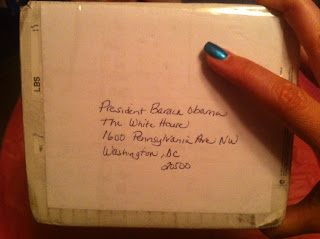 LBS
President Barack Obama
The White House
1600 Pennsylvania Ave NW
Washington, DC
20500